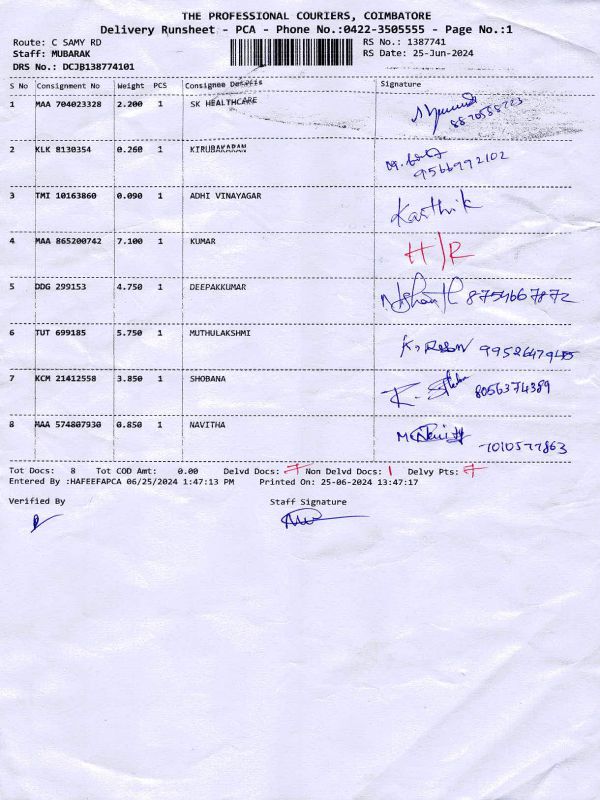 THE PROFESSIONAL COURIERS, COIMBATORE
Delivery Runsheet - PCA - Phone No.:0422-3505555 - Page No.:1
Route: C SAMY RD RS No.: 1387741
Staff: MUBARAK RS Date: 25-Jun-2024
DRS No.: DCJB138774101
S No Consignment No Weight PCS Consignee Details Signature
1 MAA 704023328 2.200 1 SK HEALTHCARE
2 KLK 8130354 0.260 1 KIRUBAKARAN
9566992102
3 TMI 10163860 0.090 1 ADHI VINAYAGAR Karthik
4 MAA 865200742 7.100 1 KUMAR H/R
5 DDG 299153 4.750 1 DEEPAKKUMAR 8754667872
6 TUT 699185 5.750 1 MUTHULAKSHMI
7 KCM 21412558 3.850 1 SHOBANA 8056374389
8 MAA 574807930 0.850 1 NAVITHA
Tot Docs: 8 Tot COD Amt: 0.00 Delvd Docs: 7 Non Delvd Docs: 1 Delvy Pts: 7
Entered By :HAFEEFAPCA 06/25/2024 1:47:13 PM Printed On: 25-06-2024 13:47:17
Verified By Staff Signature